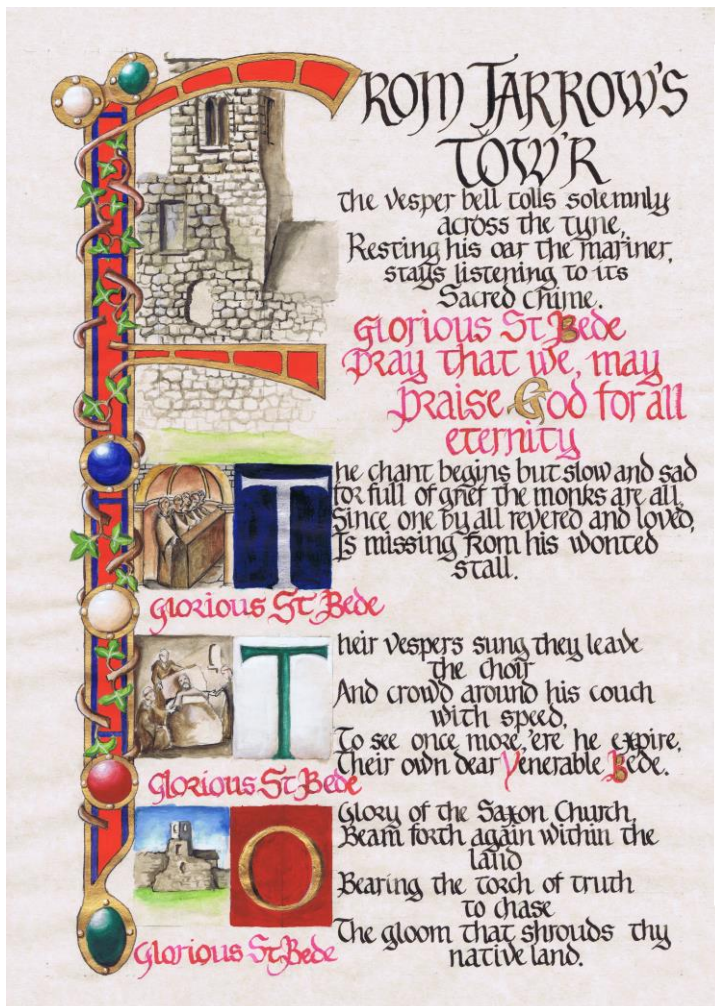 FROM JARROW'S
TOW'R
the vesper bell tolls solemnly
across the tyne,
Resting his oar the mariner,
stays listening to its
Sacred chime.
Glorious St Bede
pray that we, may
praise God for all
eternity
The chant begins but slow and sad
for full of grief the monks are all,
Since one by all revered and loved,
Is missing from his wonted
stall.
Glorious St Bede
Their vespers sung they leave
the choir
And crowd around his couch
with speed,
To see once more, 'ere he expire,
Their own dear Venerable Bede.
Glorious St Bede
O Glory of the Saxon Church,
Beam forth again within the
land
Bearing the torch of truth
to chase
The gloom that shrouds thy
native land.
Glorious St Bede